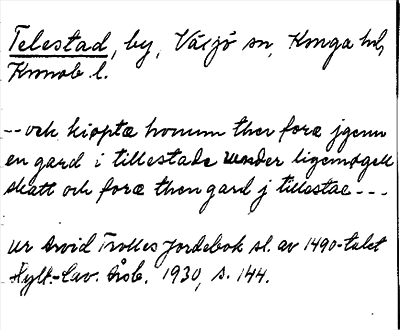 Telestad, by, Växjö sn, Konga hd,
Kronob l.
-- och kiopte honum ther fore jgenn
en gard i tillestade under ligemogell
skatt och fore then gard j tillestae ---
Ur Arvid Trolles Jordebok sl. av 1490-talet
Hylt.-Cav. Årsb. 1930, s. 144.